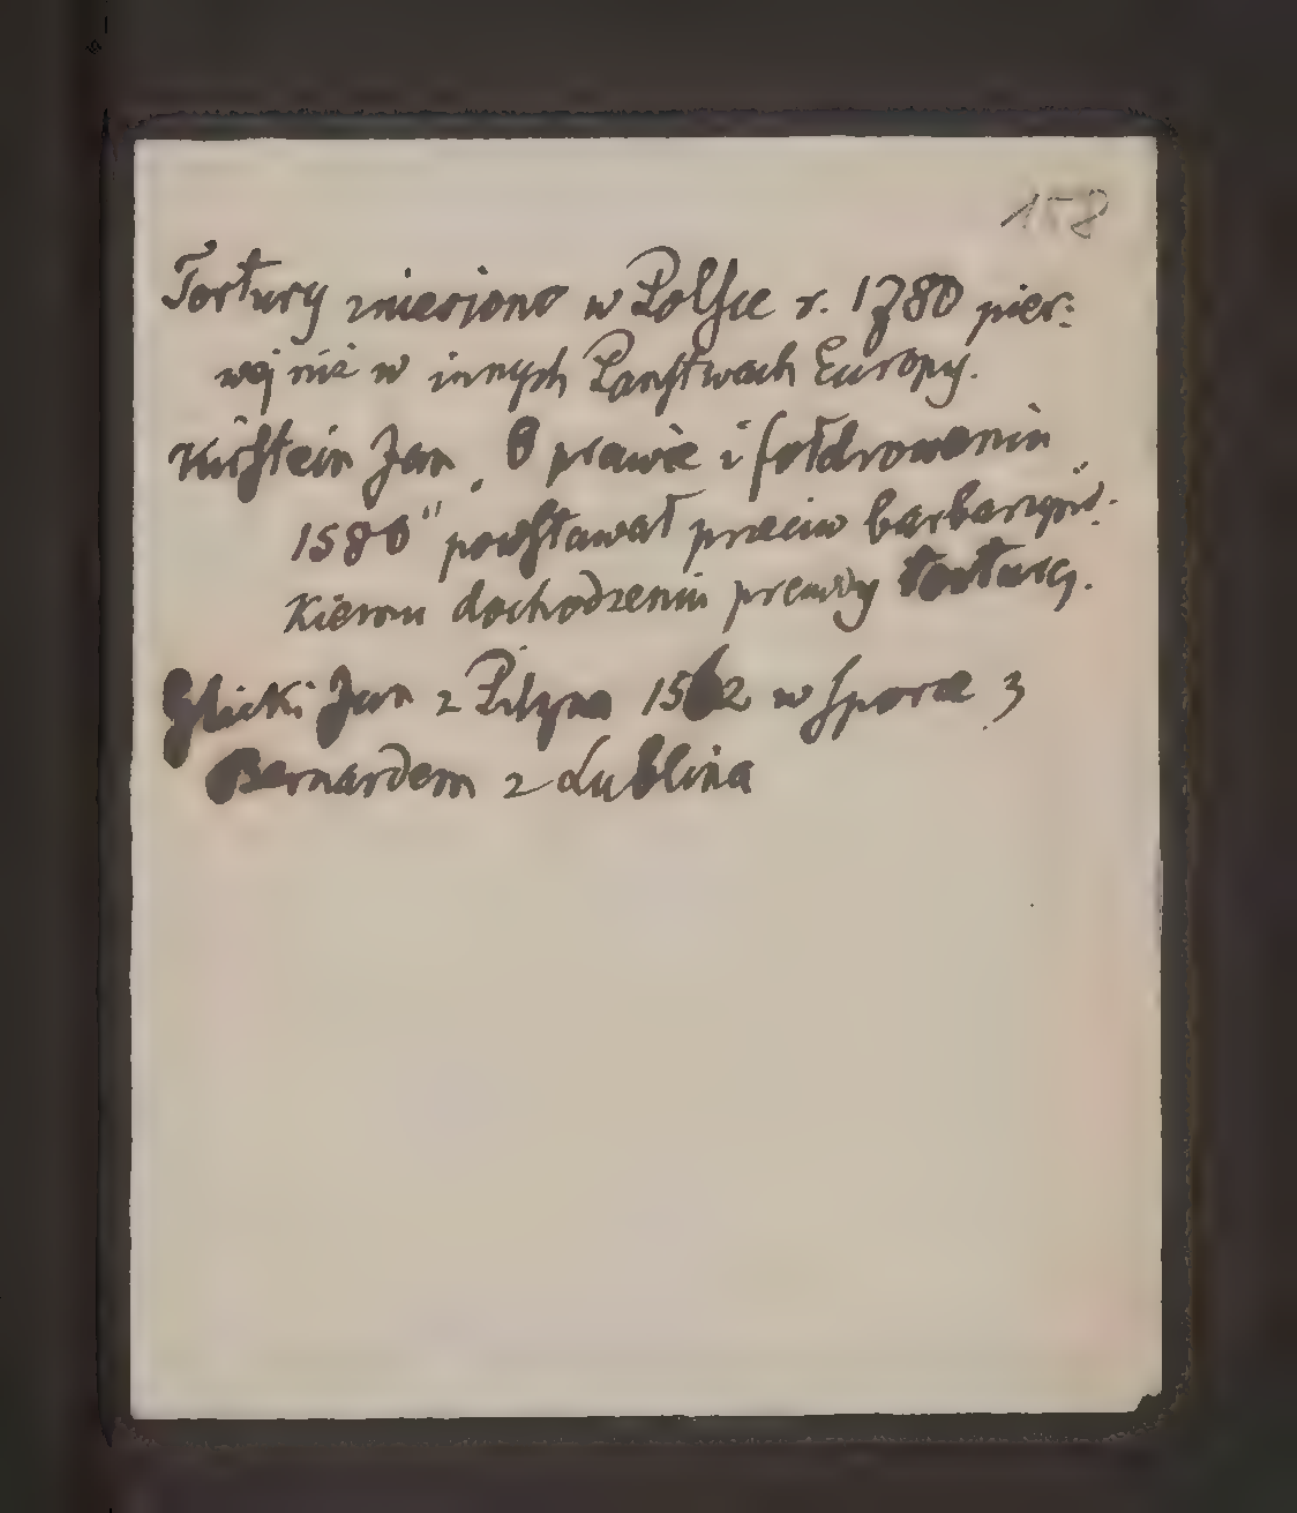 158
Tortury zniesiono w Polsce r. 1780 pier:
wej niż w innych Państwach Europy.
Kirstein Jan „O prawie i foldrowaniu
1580" powstawał przeciw barbarzyń:
kiemu dochodzeniu prawdy torturą.
Glicki Jan z Pilzna 1562 w sporze z
Bernardem z Lublina